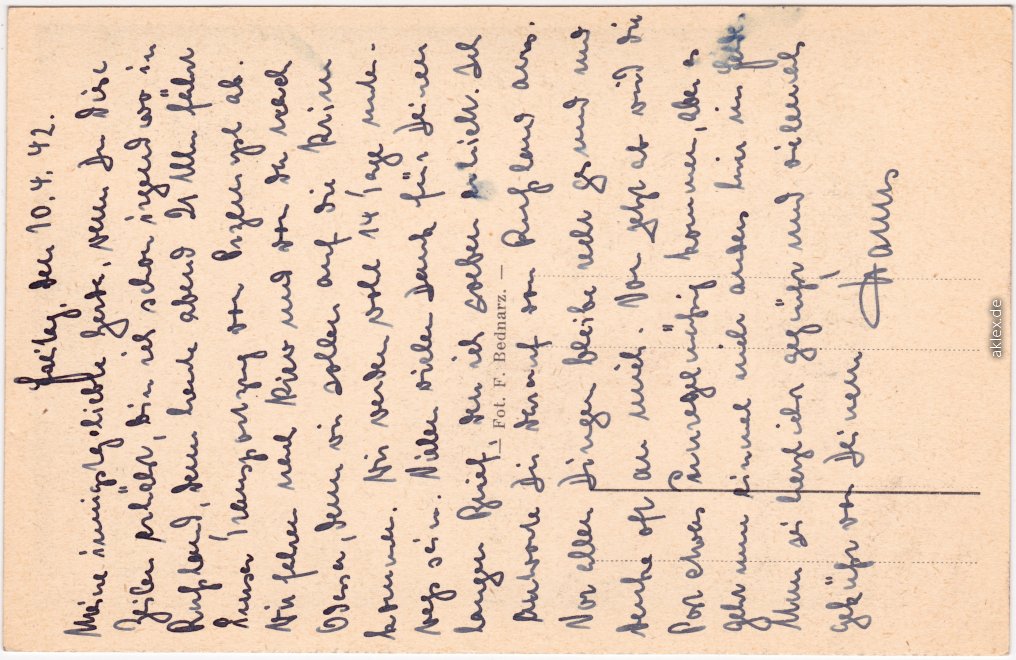 Freitag, den 10.4.42.
Meine innigstgeliebte Gerda, wenn Du diese
Zeilen erhältst, bin ich schon irgendwo in
Rußland, denn heute abend 21 Uhr fährt
unser Transportzug von Przemysl ab.
Wir fahren nach Kiew und von da nach
Odessa, denn wir sollen auf die Krim
kommen. Wir werden wohl 14 Tage unter-
wegs sein. Vielen vielen Dank für Deinen
langen Brief, den ich soeben erhielt. Ich
antworte Dir darauf von Rußland aus.
Vor allen Dingen bleibe recht gesund und
denke oft an mich. Von jetzt ab wird die
Post etwas unregelmäßig kommen, aber es
geht nun einmal nicht anders hier im Felde.
Nun sei herzlich gegrüßt und vielmals
geküßt von Deinem
Hans
— Fot. F. Bednarz. —
aklex.de